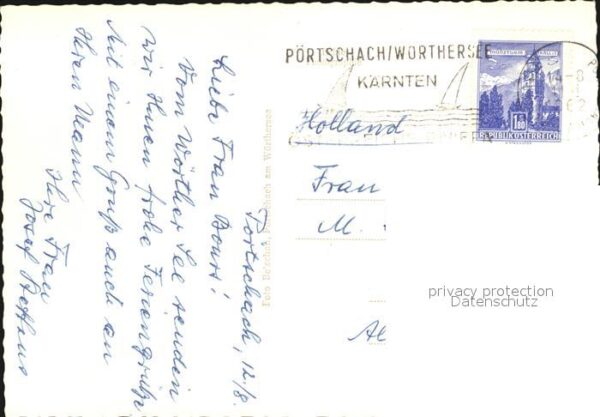 Pörtschach, 12./8.
Liebe Frau Bours!
Vom Wörther See senden
wir Ihnen frohe Feriengrüße
Mit einem Gruß auch an
Ihren Mann
Ihre Frau
Josef
Foto Pörtschach am Wörthersee
PÖRTSCHACH/WÖRTHERSEE
KÄRNTEN
14-8
62
1.80
REPUBLIK ÖSTERREICH
Holland
Frau
M.
privacy protection
Datenschutz